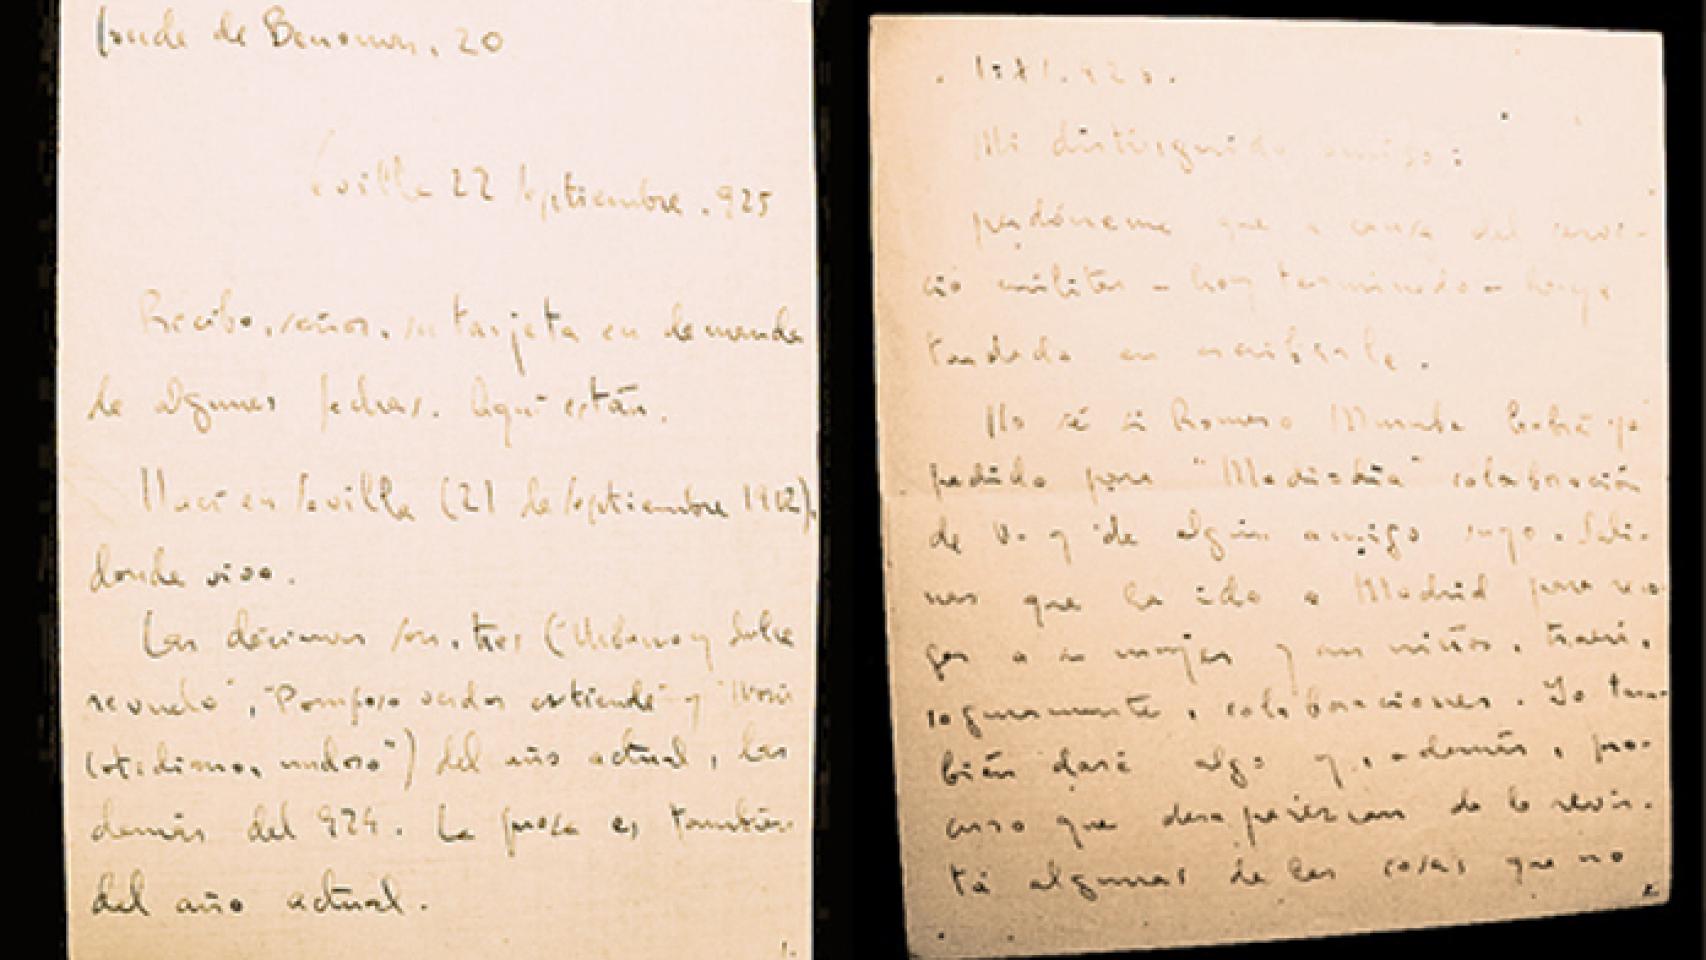 Conde de Benomar, 20
Sevilla 22 Septiembre. 925
Recibo, señor, su tarjeta en demanda
de algunas fechas. Aquí están.
Nací en Sevilla (21 de Septiembre 1902),
donde vivo.
Las décimas son tres ("Urbano y dulce
revuelo", "Pomposo verdor extiende" y
cotidiano, nudoso") del año actual, las
demás del 924. La prosa es también
del año actual.
1.
Mi distinguido amigo:
perdóneme que a causa del servi-
cio militar - hoy terminado - haya
tardado en escribirle.
No sé si Romero Murube habrá ya
pedido para "Mediodía" colaboración
de V. y de algún amigo suyo. Sali-
nas que ha ido a Madrid para reco-
ger a su mujer y sus niños, traerá,
seguramente, colaboraciones. Yo tam-
bién daré algo y, además, pro-
curo que desaparezcan de la revis-
ta algunas de las cosas que no